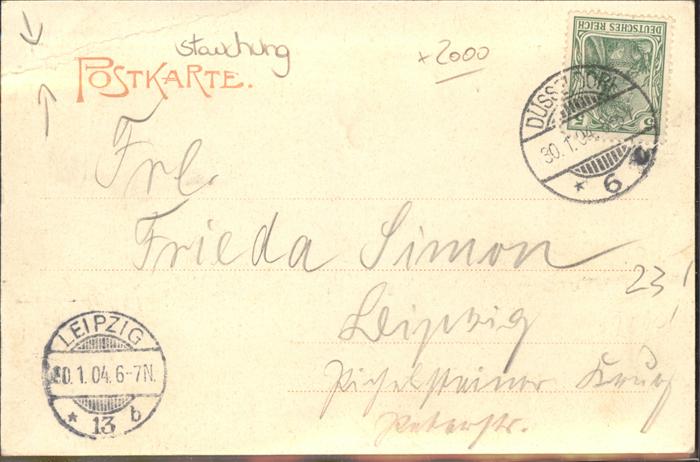 stauchung
+2000
POSTKARTE.
DEUTSCHES REICH
5 5
DÜSSELDORF
30.1.04.
* 6
Frl.
Frieda Simon
23
Leipzig
Pichelsteiner Krug
Peterstr.
LEIPZIG
30.1.04.6-7N.
* 13 b